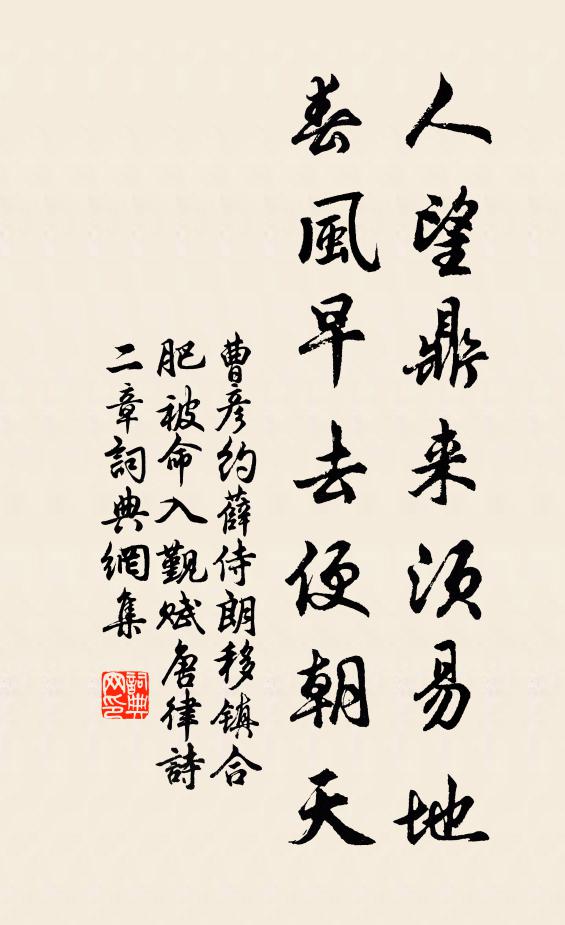 人望鼎来须易地
春風早去便朝天
曹彦约薛侍朗移镇合
肥被命入觐赋唐律詩
二章詞典網集
詞典網印